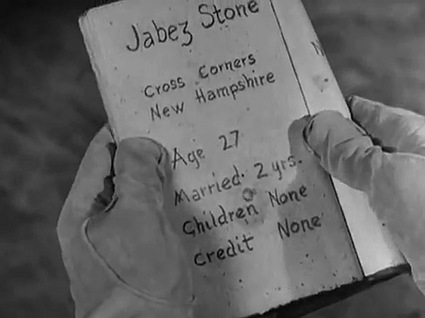 Jabez Stone
Cross Corners
New Hampshire
Age 27
Married 2 yrs.
Children None
Credit None
N